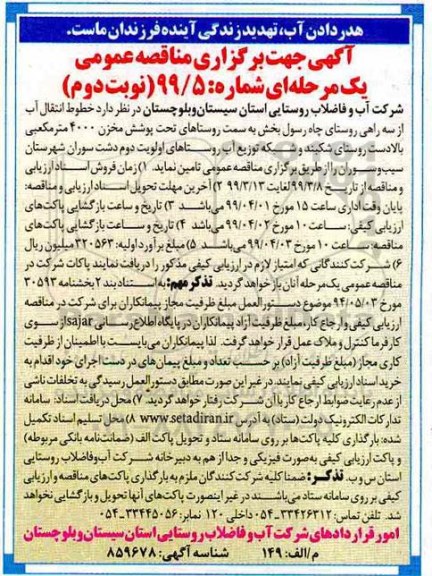 هدر دادن آب، تهدید زندگی آینده فرزندان ماست.
آگهی جهت برگزاری مناقصه عمومی
یک مرحله‌ای شماره: ۹۹/۵ (نوبت دوم)
شرکت آب و فاضلاب روستایی استان سیستان و بلوچستان در نظر دارد خطوط انتقال آب
از سه راهی روستای چاه رسول بخش به سمت روستاهای تحت پوشش مخزن ۴۰۰۰ مترمکعبی
بالادست روستای مکیند و شبکه توزیع آب روستاهای اولویت دوم دشت سوران شهرستان
سیب و سوران را از طریق برگزاری مناقصه عمومی تامین نماید. ۱) زمان فروش اسناد ارزیابی
و مناقصه از تاریخ ۹۹/۳/۸ لغایت ۹۹/۳/۱۳ ۲) آخرین مهلت تحویل اسناد ارزیابی و مناقصه:
پایان وقت اداری ساعت ۱۵ مورخ ۹۹/۰۴/۰۱ می‌باشد ۳) تاریخ و ساعت بازگشایی پاکت‌های
ارزیابی کیفی: ساعت ۱۰ مورخ ۹۹/۰۴/۰۲ می‌باشد ۴) تاریخ و ساعت بازگشایی پاکت‌های
مناقصه: ساعت ۱۰ مورخ ۹۹/۰۴/۰۳ می‌باشد ۵) مبلغ برآورد اولیه: ۳۲۰۵۶۳ میلیون ریال
۶) شرکت‌کنندگانی که امتیاز لازم در ارزیابی کیفی مذکور را دریافت نمایند پاکات شرکت در
مناقصه عمومی یک مرحله آنان باز خواهد گردید. تذکر مهم: به استناد بند ۲ بخشنامه ۳۰۵۹۳
مورخ ۹۴/۰۵/۰۳ موضوع دستورالعمل مبلغ ظرفیت مجاز پیمانکاران برای شرکت در مناقصه
ارزیابی کیفی و ارجاع کار، مبلغ ظرفیت آزاد پیمانکاران در پایگاه اطلاع رسانی sajar از سوی
کارفرما کنترل و ملاک عمل قرار خواهد گرفت. لذا پیمانکاران می‌بایست با اطمینان از ظرفیت
کاری مجاز (مبلغ ظرفیت آزاد) بر حسب تعداد و مبلغ پیمان‌های در دست اجرای خود اقدام به
خرید اسناد ارزیابی کیفی نمایند. در غیر این صورت مطابق دستورالعمل رسیدگی به تخلفات ناشی
از عدم رعایت ضوابط ارجاع کار با آن شرکت رفتار خواهد گردید. ۷) محل دریافت اسناد: سامانه
تدارکات الکترونیک دولت (ستاد) به آدرس www.setadiran.ir ۸) محل تسلیم اسناد تکمیل
شده: بارگذاری کلیه پاکت‌ها بر روی سامانه ستاد و تحویل پاکت الف (ضمانت‌نامه بانکی مربوطه)
و پاکت ارزیابی کیفی به صورت فیزیکی و جدا از هم به دبیرخانه شرکت آب و فاضلاب روستایی
استان س و ب. تذکر: ضمنا کلیه شرکت‌کنندگان ملزم به بارگذاری پاکت‌های مناقصه و ارزیابی
کیفی بر روی سامانه ستاد می‌باشند در غیر اینصورت پاکت‌های آنها تحویل و بازگشایی نخواهد
شد. تلفن تماس: ۳۳۴۲۶۳۱۲-۰۵۴ داخلی ۱۲۰ نمابر: ۳۳۴۴۵۰۵۶-۰۵۴
امور قراردادهای شرکت آب و فاضلاب روستایی استان سیستان و بلوچستان
م/الف: ۱۴۹ شناسه آگهی: ۸۵۹۶۷۸